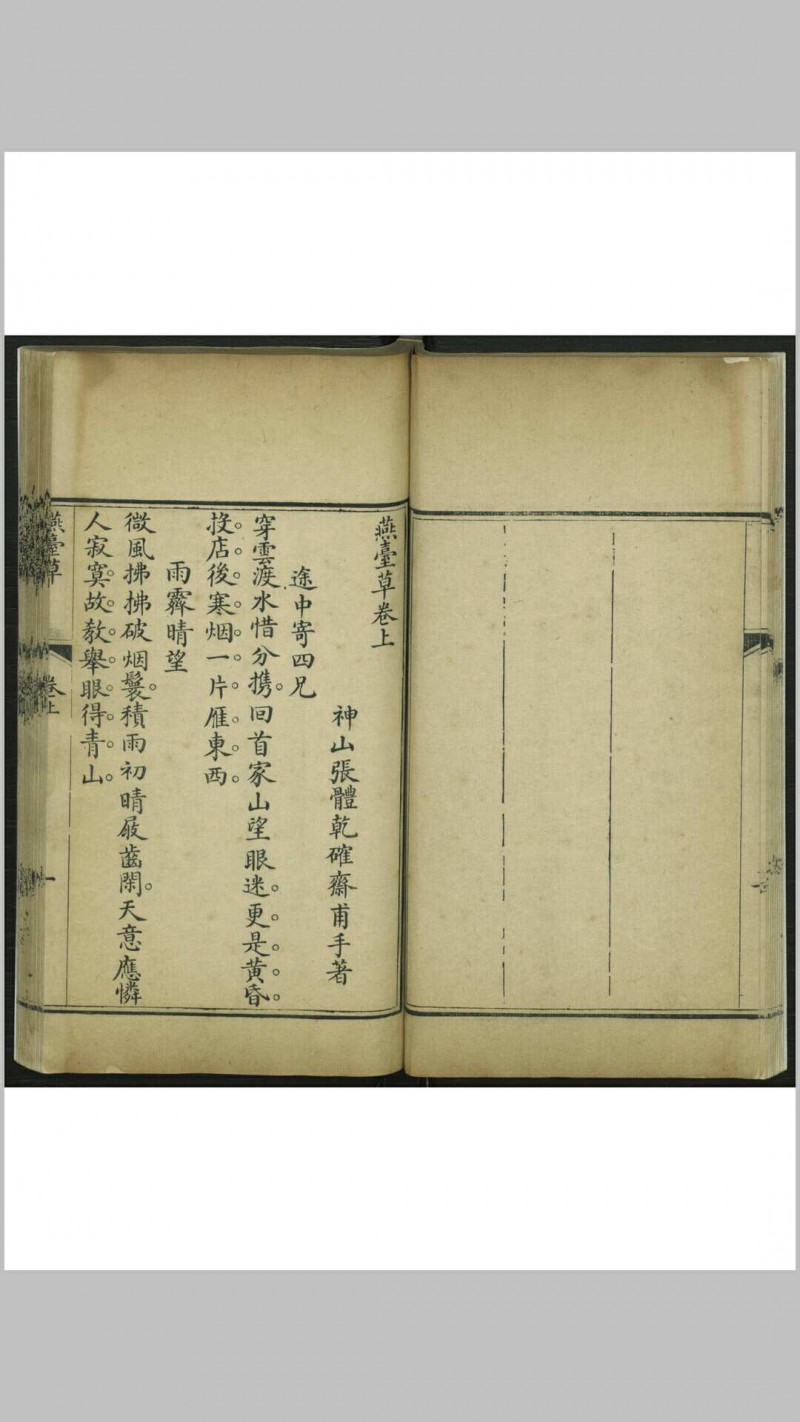 燕臺草卷上
神山張體乾確齋甫手著
途中寄四兄
穿雲渡水惜分携。回首家山望眼迷。更。是。黄。昏。
投。店。後。寒。烟。一。片。雁。東。西。
雨霽晴望
微風拂拂破烟鬟。積雨初晴屐齒閑。天意應憐
人寂寞。故。教。舉。眼。得。青。山。
燕臺草
卷上
一